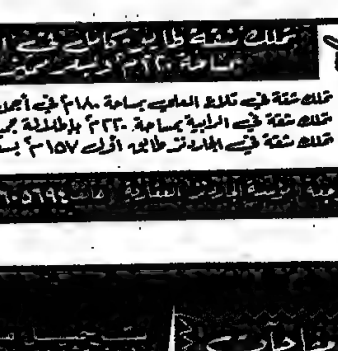 تملك شقة طابق كامل في
بمساحة ٢٢٠م وبسعر مميز
تملك شقة في تلاع العلي بمساحة ١٨٠م في أجمل
تملك شقة في الرابية بمساحة ٢٢٠م بإطلالة
تملك شقة في الجاردنز طابق أول ١٥٧م
مؤسسة الجاردنز العقارية هاتف ٦٠٥٦٩٤
مفاجآت